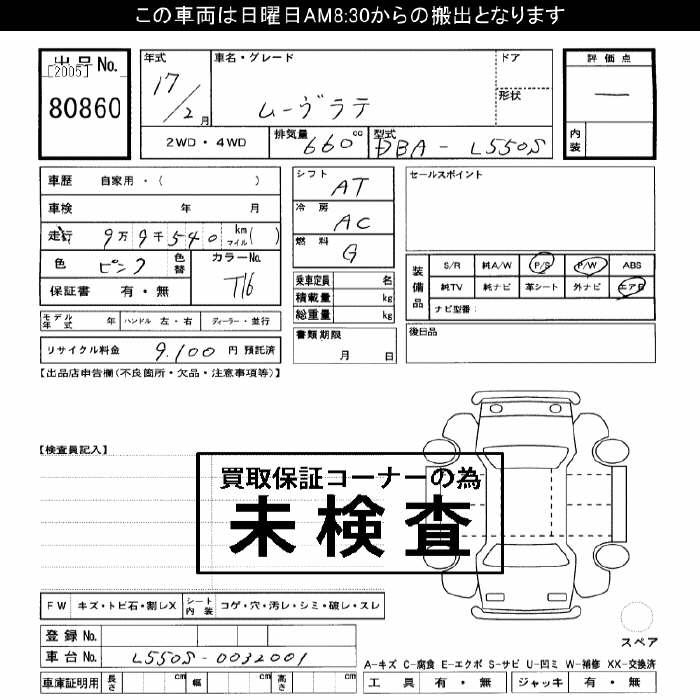 この車両は日曜日AM8:30からの搬出となります
出品No.
[2005]
80860
年式
17/2月
車名・グレード
ムーヴラテ
ドア
形状
評価点
—
内装
2WD・4WD
排気量
660cc
型式
DBA-L550S
車歴 自家用・( )
車検 年 月
走行 9万9千540 km マイル( )
色 ピンク 色替
カラーNo.
T16
保証書 有・無
モデル年式 年 ハンドル 左・右 ディーラー・並行
リサイクル料金 9,100円 預託済
シフト AT
冷房 AC
燃料 G
乗車定員 名
積載量 kg
総重量 kg
書類期限
月 日
セールスポイント
装備品
S/R 純A/W P/S P/W ABS
純TV 純ナビ 革シート 外ナビ エアB
ナビ型番:
後日品
【出品店申告欄(不良箇所・欠品・注意事項等)】
【検査員記入】
買取保証コーナーの為
未検査
FW キズ・トビ石・割レX シート内装 コゲ・穴・汚レ・シミ・破レ・スレ
登録No.
車台No. L550S-0032001
車庫証明用 長さ cm 幅 cm 高さ cm
スペア
A-キズ C-腐食 E-エクボ S-サビ U-凹ミ W-補修 XX-交換済
工具 有・無 ジャッキ 有・無